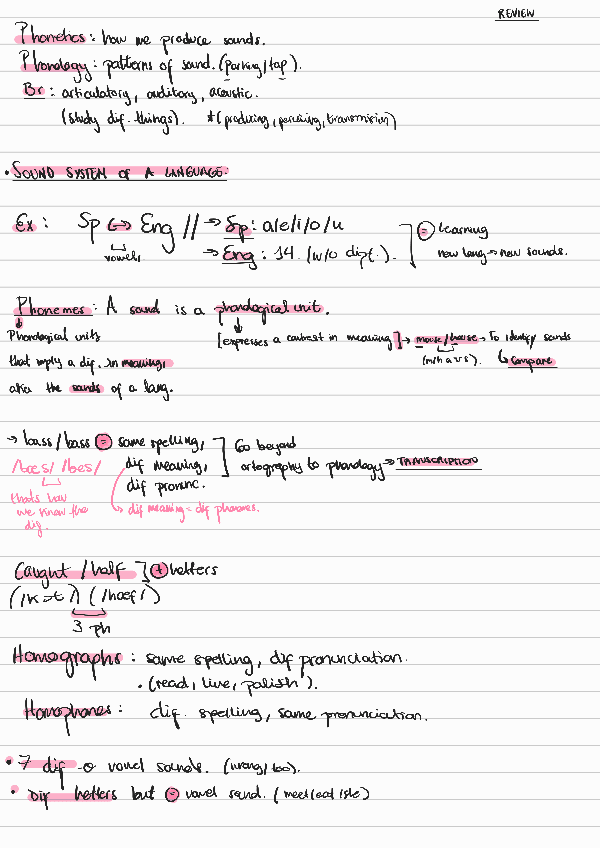 REVIEW
Phonetics: how we produce sounds.
Phonology: patterns of sound. (parking/tap).
Br: articulatory, auditory, acoustic.
(study dif. things). *(producing, perceiving, transmision)
• SOUND SYSTEM OF A LANGUAGE:
Ex: Sp ↔ Eng // → Sp: a/e/i/o/u
vowels → Eng: 14. (w/o dipt.).
= learning
new lang → new sounds.
Phonemes: A sound is a phonological unit.
Phonological units
that imply a dif. in meaning,
after the sounds of a lang.
[expresses a contrast in meaning] → mouse/house → To identify sounds
(m/h a u s). ↳ compare
→ bass/bass = same spelling,
dif meaning,
dif pronunc.
Go beyond
ortography to phonology → TRANSCRIPTION
/bæs/ /beis/
that's how
we know the
dif.
↳ dif meaning = dif phonemes.
Caught / half ] + letters
(/kɔt/) (/hæf/)
3 ph
Homographs: same spelling, dif pronunciation.
• (read, live, polish).
Homophones: dif. spelling, same pronunciation.
• 7 dif → o vowel sounds. (wrong/too).
• Dif letters but = vowel sound. (meet/eat/)